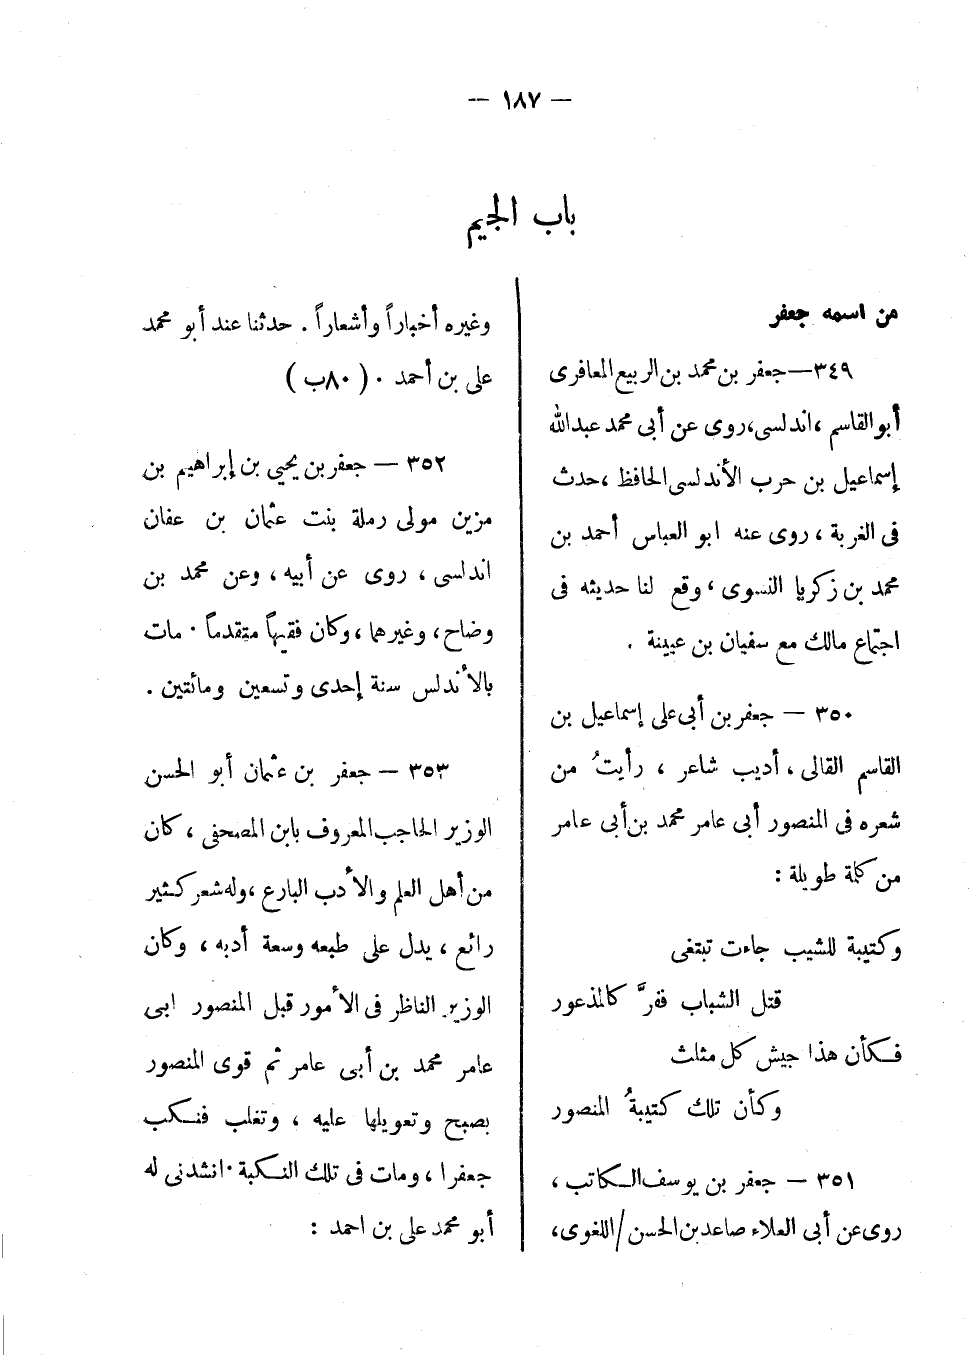 — ١٨٧ —
باب الجيم
من اسمه جعفر
٣٤٩—جعفر بن محمد بن الربيع المعافرى
أبو القاسم ، اندلسى، روى عن أبى محمد عبدالله
إسماعيل بن حرب الأندلسى الحافظ ، حدث
فى الغربة ، روى عنه ابو العباس أحمد بن
محمد بن زكريا النسوى ، وقع لنا حديثه فى
اجتماع مالك مع سفيان بن عيينة .
٣٥٠ — جعفر بن أبى على إسماعيل بن
القاسم القالى ، أديب شاعر ، رأيتُ من
شعره فى المنصور أبى عامر محمد بن أبى عامر
من كلمة طويلة :
وكتيبة للشيب جاءت تبتغى
قتل الشباب ففرَّ كالمذعور
فكأن هذا جيش كل مثلث
وكأن تلك كتيبةُ المنصور
٣٥١ — جعفر بن يوسف الكاتب ،
روى عن أبى العلاء صاعد بن الحسن /اللغوى،
وغيره أخباراً وأشعاراً . حدثنا عند أبو محمد
على بن أحمد . ( ٨٠ب )
٣٥٢ — جعفر بن يحيى بن إبراهيم بن
مزين مولى رملة بنت عثمان بن عفان
اندلسى ، روى عن أبيه ، وعن محمد بن
وضاح، وغيرهما ، وكان فقيهاً متقدماً . مات
بالأندلس سنة إحدى وتسعين ومائتين .
٣٥٣ — جعفر بن عثمان أبو الحسن
الوزير الحاجب المعروف بابن المصحفى ، كان
من أهل العلم والأدب البارع ، وله شعر كثير
رائع ، يدل على طبعه وسعة أدبه ، وكان
الوزير الناظر فى الأمور قبل المنصور ابى
عامر محمد بن أبى عامر ثم قوى المنصور
بصبح وتعويلها عليه ، وتغلب فنكب
جعفرا ، ومات فى تلك النكبة . انشدنى له
أبو محمد على بن احمد :